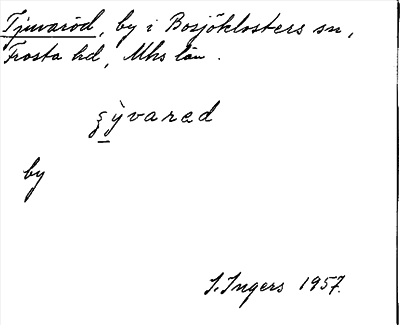 Tjuvaröd, by i Bosjöklosters sn,
Frosta hd, Mhs län.
ʂỳvarəd
by
S. Ingers 1957.